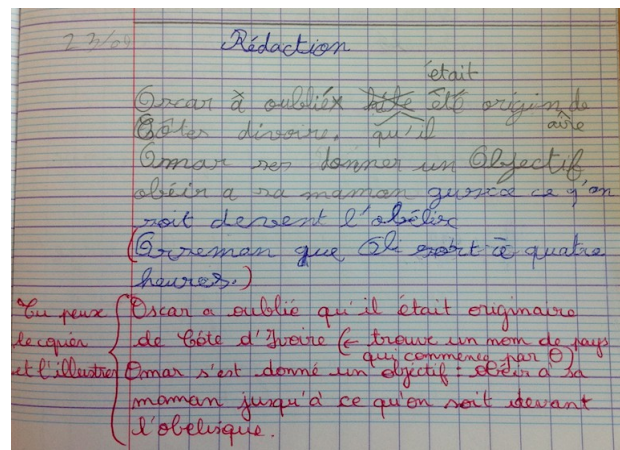 23/04 Rédaction
était
Oscar à oublié été origin de
Côtes divoire. qu'il aire
Omar ses donner un Objectif
obéir a sa maman gusxa ce q'on
soit devent l'obélix
(Orreman que Oli sort à quatre
heures.)
Tu peux Oscar a oublié qu'il était originaire
recopier de Côte d'Ivoire (← trouve un nom de pays
qui commence par O)
et l'illustrer Omar s'est donné un objectif : obéir à sa
maman jusqu'à ce qu'on soit devant
l'obélisque.